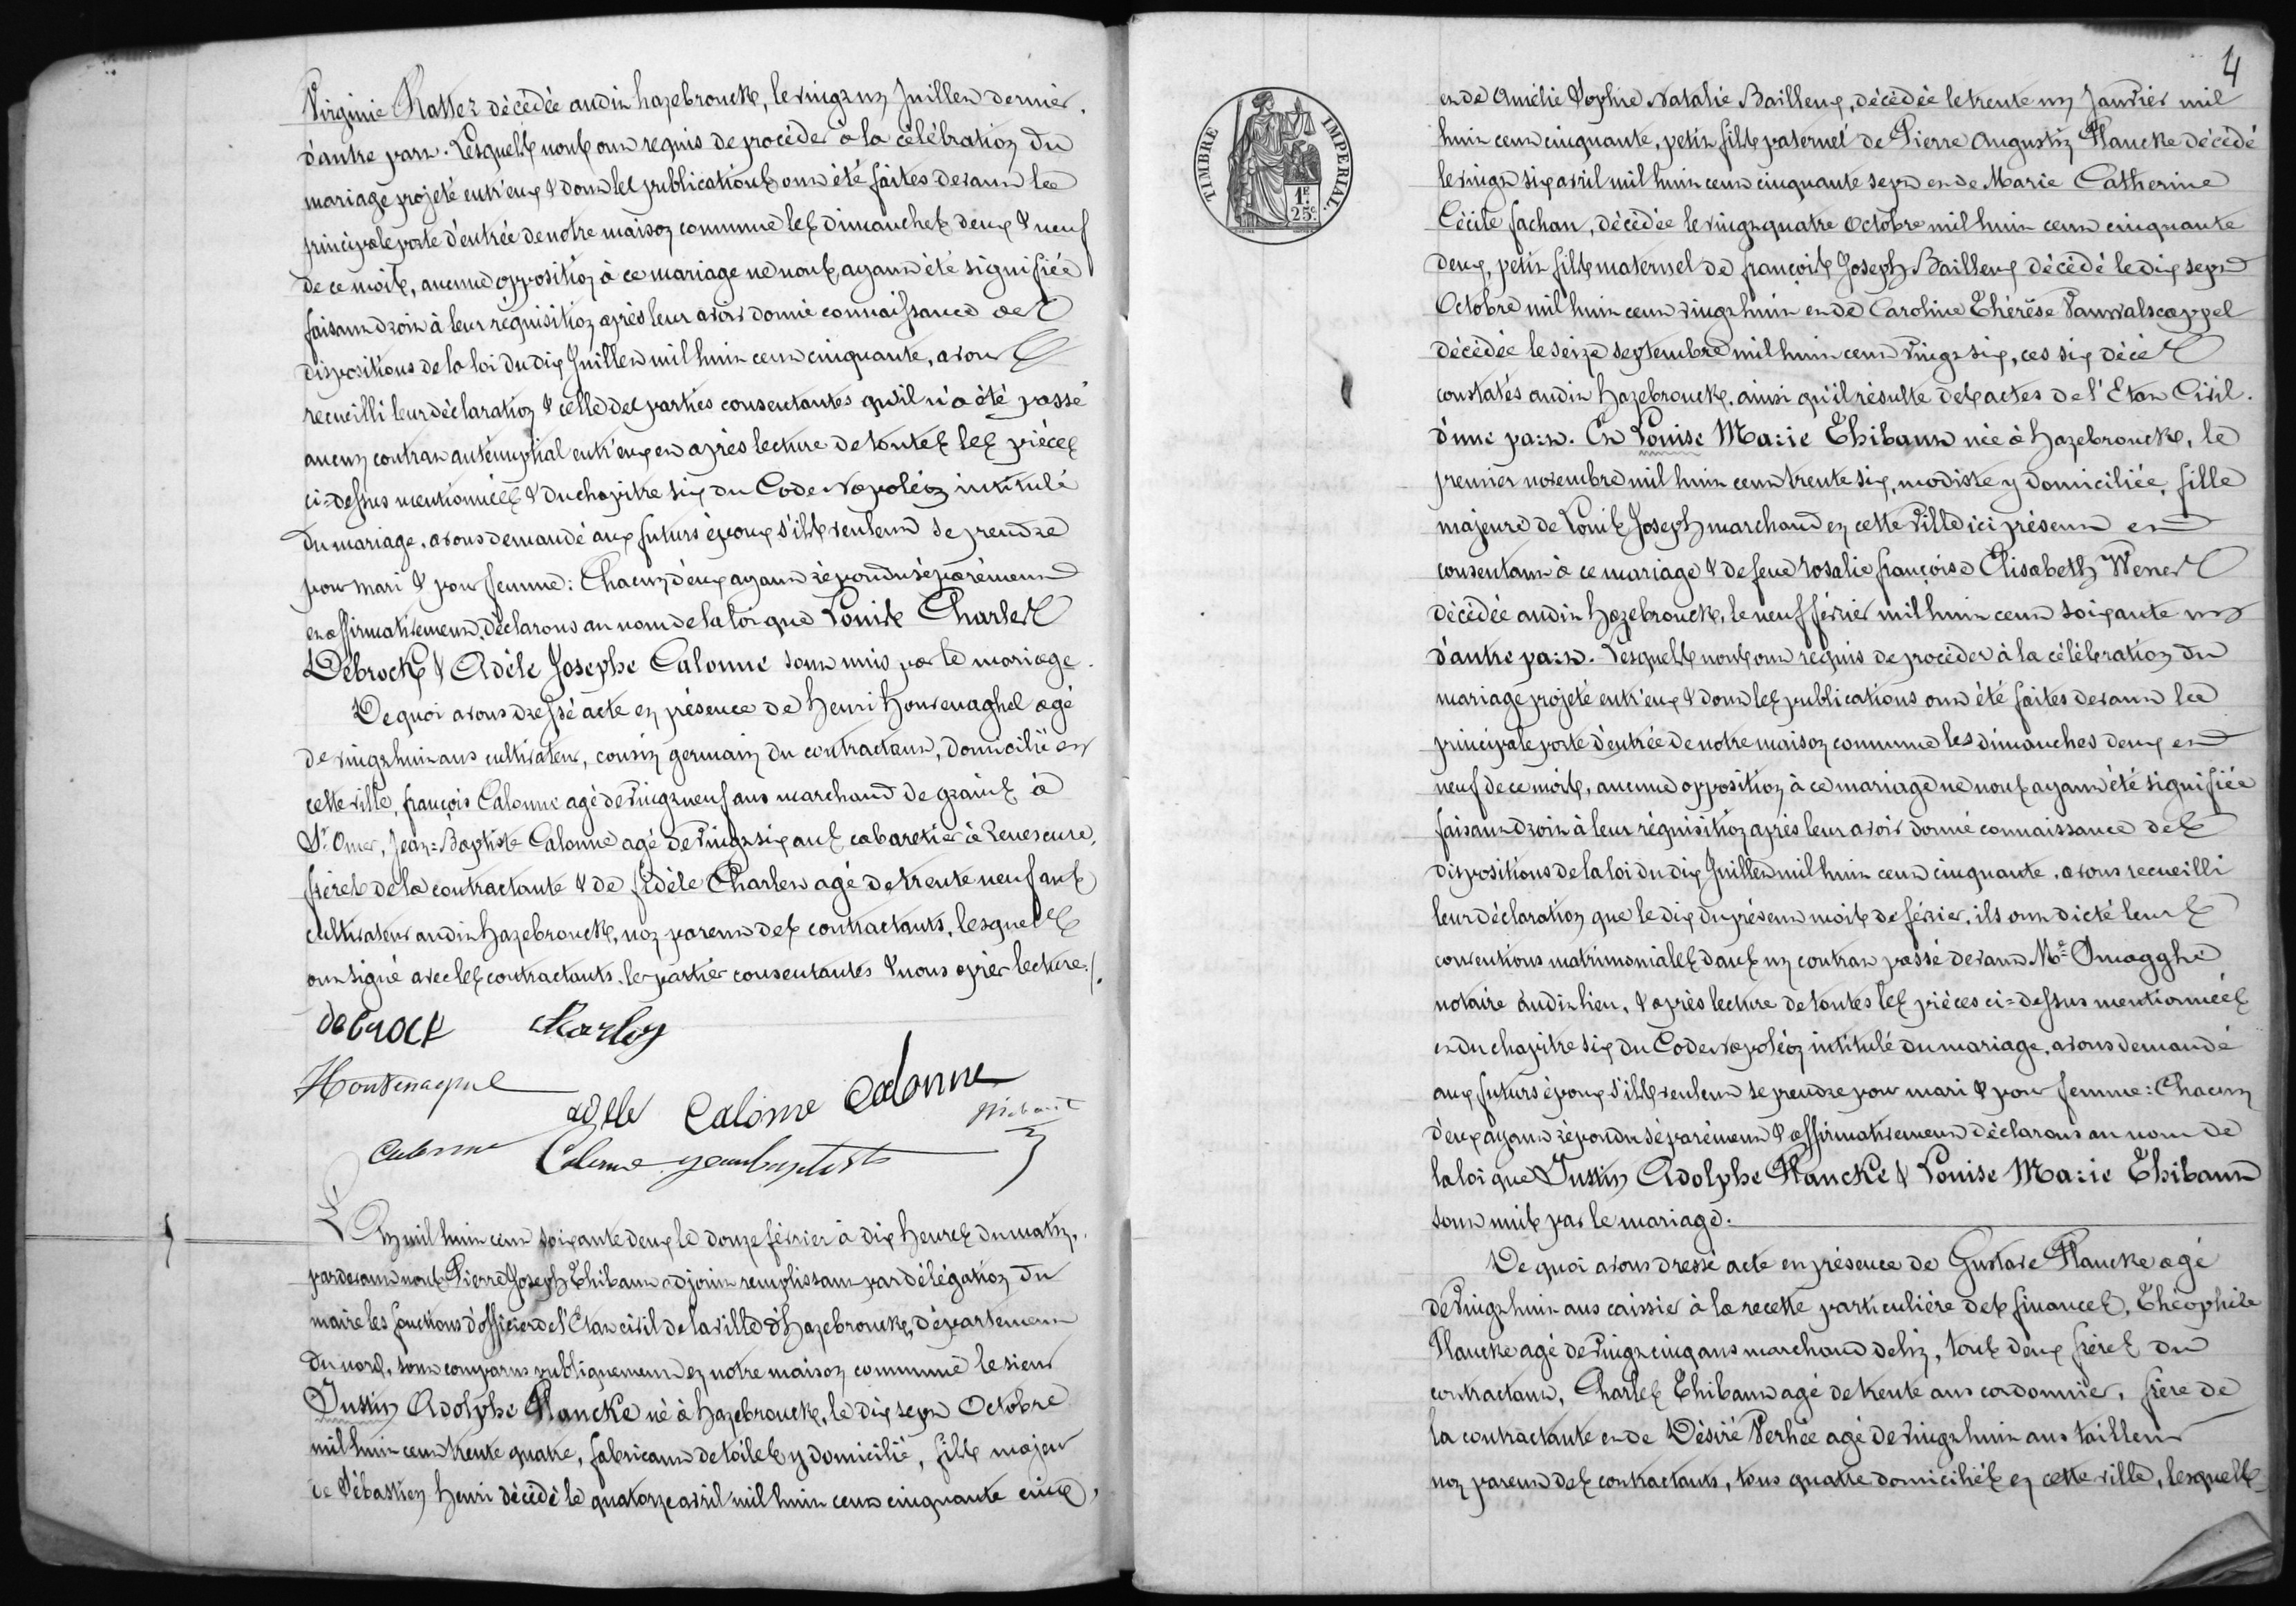 Virginie Rattez décédée audit hazebrouck, le vingt un Juillet dernier.
d'autre part. Lesquels nous ont requis de procéder à la célébration du
mariage projeté entr'eux & dont les publications ont été faites devant la
principale porte d'entrée de notre maison commune les dimanches deux & neuf
de ce mois, aucune opposition à ce mariage ne nous ayant été signifiée
faisant droit à leur réquisition après leur avoir donné connaissance des
dispositions de la loi du dix Juillet mil huit cent cinquante, avons
recueilli leur déclaration & celle des parties consentantes qu'il n'a été passé
aucun contrat anténuptial entr'eux et après lecture de toutes les pièces
ci-dessus mentionnées & du chapitre six du Code Napoléon intitulé
du mariage, avons demandé aux futurs époux s'ils veulent se prendre
pour mari & pour femme: Chacun d'eux ayant répondu séparément
et affirmativement, déclarons au nom de la loi que Louis Charles
Debrock & Adèle Josephe Calonne sont unis par le mariage.
De quoi avons dressé acte en présence de henri Houvenaghel agé
de vingt huit ans cultivateur, cousin germain du contractant, domicilié en
cette ville, françois Calonne agé de vingt neuf ans marchand de grains à
St Omer, Jean-Baptiste Calonne agé de vingt six ans cabaretier à Renescure,
frères de la contractante & de fidèle Charlet agé de trente neuf ans
cultivateur audit hazebrouck, non parent des contractants, lesquels
ont signé avec les contractants, les parties consentantes & nous après lecture./.
debrock Charles
Houvenaghel
adele Calonne Calonne
Thibaut
Calonne Calonne jeanbaptiste
L'An mil huit cent soixante deux le douze février à dix heures du matin,
pardevant nous Pierre Joseph Thibaut adjoint remplissant par délégation du
maire les fonctions d'officier de l'Etat civil de la ville d'hazebrouck, département
du nord, sont comparus publiquement en notre maison commune le sieur
Justin Adolphe Plancke né à hazebrouck, le dix sept Octobre
mil huit cent trente quatre, fabricant de toiles y domicilié, fils majeur
de Sébastien henri décédé le quatorze avril mil huit cent cinquante cinq,
4
TIMBRE IMPERIAL.
1F. 25c.
et de Amélie Sophie Natalie Bailleux, décédée le trente un Janvier mil
huit cent cinquante, petit fils paternel de Pierre Augustin Plancke décédé
le vingt six avril mil huit cent cinquante sept et de Marie Catherine
Cécile fachan, décédée le vingt quatre Octobre mil huit cent cinquante
deux, petit fils maternel de françois Joseph Bailleux décédé le dix sept
Octobre mil huit cent vingt huit et de Caroline Thérèse Vanwalscappel
décédée le seize septembre mil huit cent vingt six, ces six décès
constatés audit hazebrouck, ainsi qu'il résulte des actes de l'Etat Civil.
d'une part. Et Louise Marie Thibaut née à hazebrouck, le
premier novembre mil huit cent trente six, modiste y domiciliée, fille
majeure de Louis Joseph marchand en cette ville ici présent et
consentant à ce mariage & de feue rosalie françoise Elisabeth
décédée audit hazebrouck, le neuf février mil huit cent soixante un
d'autre part. Lesquels nous ont requis de procéder à la célébration du
mariage projeté entr'eux & dont les publications ont été faites devant la
principale porte d'entrée de notre maison commune les dimanches deux et
neuf de ce mois, aucune opposition à ce mariage ne nous ayant été signifiée
faisant droit à leur réquisition après leur avoir donné connaissance des
dispositions de la loi du dix Juillet mil huit cent cinquante, avons recueilli
leur déclaration que le dix du présent mois de février, ils ont dicté leurs
conventions matrimoniales dans un contrat passé devant Me Smagghe
notaire audit lieu, & après lecture de toutes les pièces ci-dessus mentionnées
et du chapitre six du Code Napoléon intitulé du mariage, avons demandé
aux futurs époux s'ils veulent se prendre pour mari & pour femme: Chacun
d'eux ayant répondu séparément & affirmativement déclarons au nom de
la loi que Justin Adolphe Plancke & Louise Marie Thibaut
sont unis par le mariage.
De quoi avons dressé acte en présence de Gustave Plancke agé
de vingt huit ans caissier à la recette particulière des finances, Théophile
Plancke agé de vingt cinq ans marchand de lin, tous deux frères du
contractant, Charles Thibaut agé de trente ans cordonnier, frère de
la contractante et de Désiré Verhée agé de vingt huit ans tailleur
non parent des contractants, tous quatre domiciliés en cette ville, lesquels